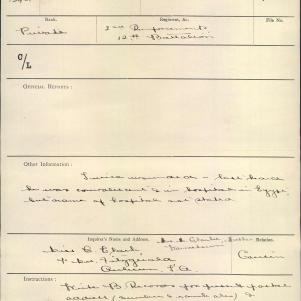 Rank.
Regiment, &c.
File No.
Private
2nd Reinforcements
12th Battalion
C/L
OFFICIAL REPORTS :
Other Information :
Twice wounded – last heard
he was convalescent & in hospital in Egypt
but name of hospital not stated
Inquirer's Name and Address.
Relation.
Miss C Clark
Cousin
Fitzgerald
S.A
Instructions :
Write B Records for present
address (number & rank also)